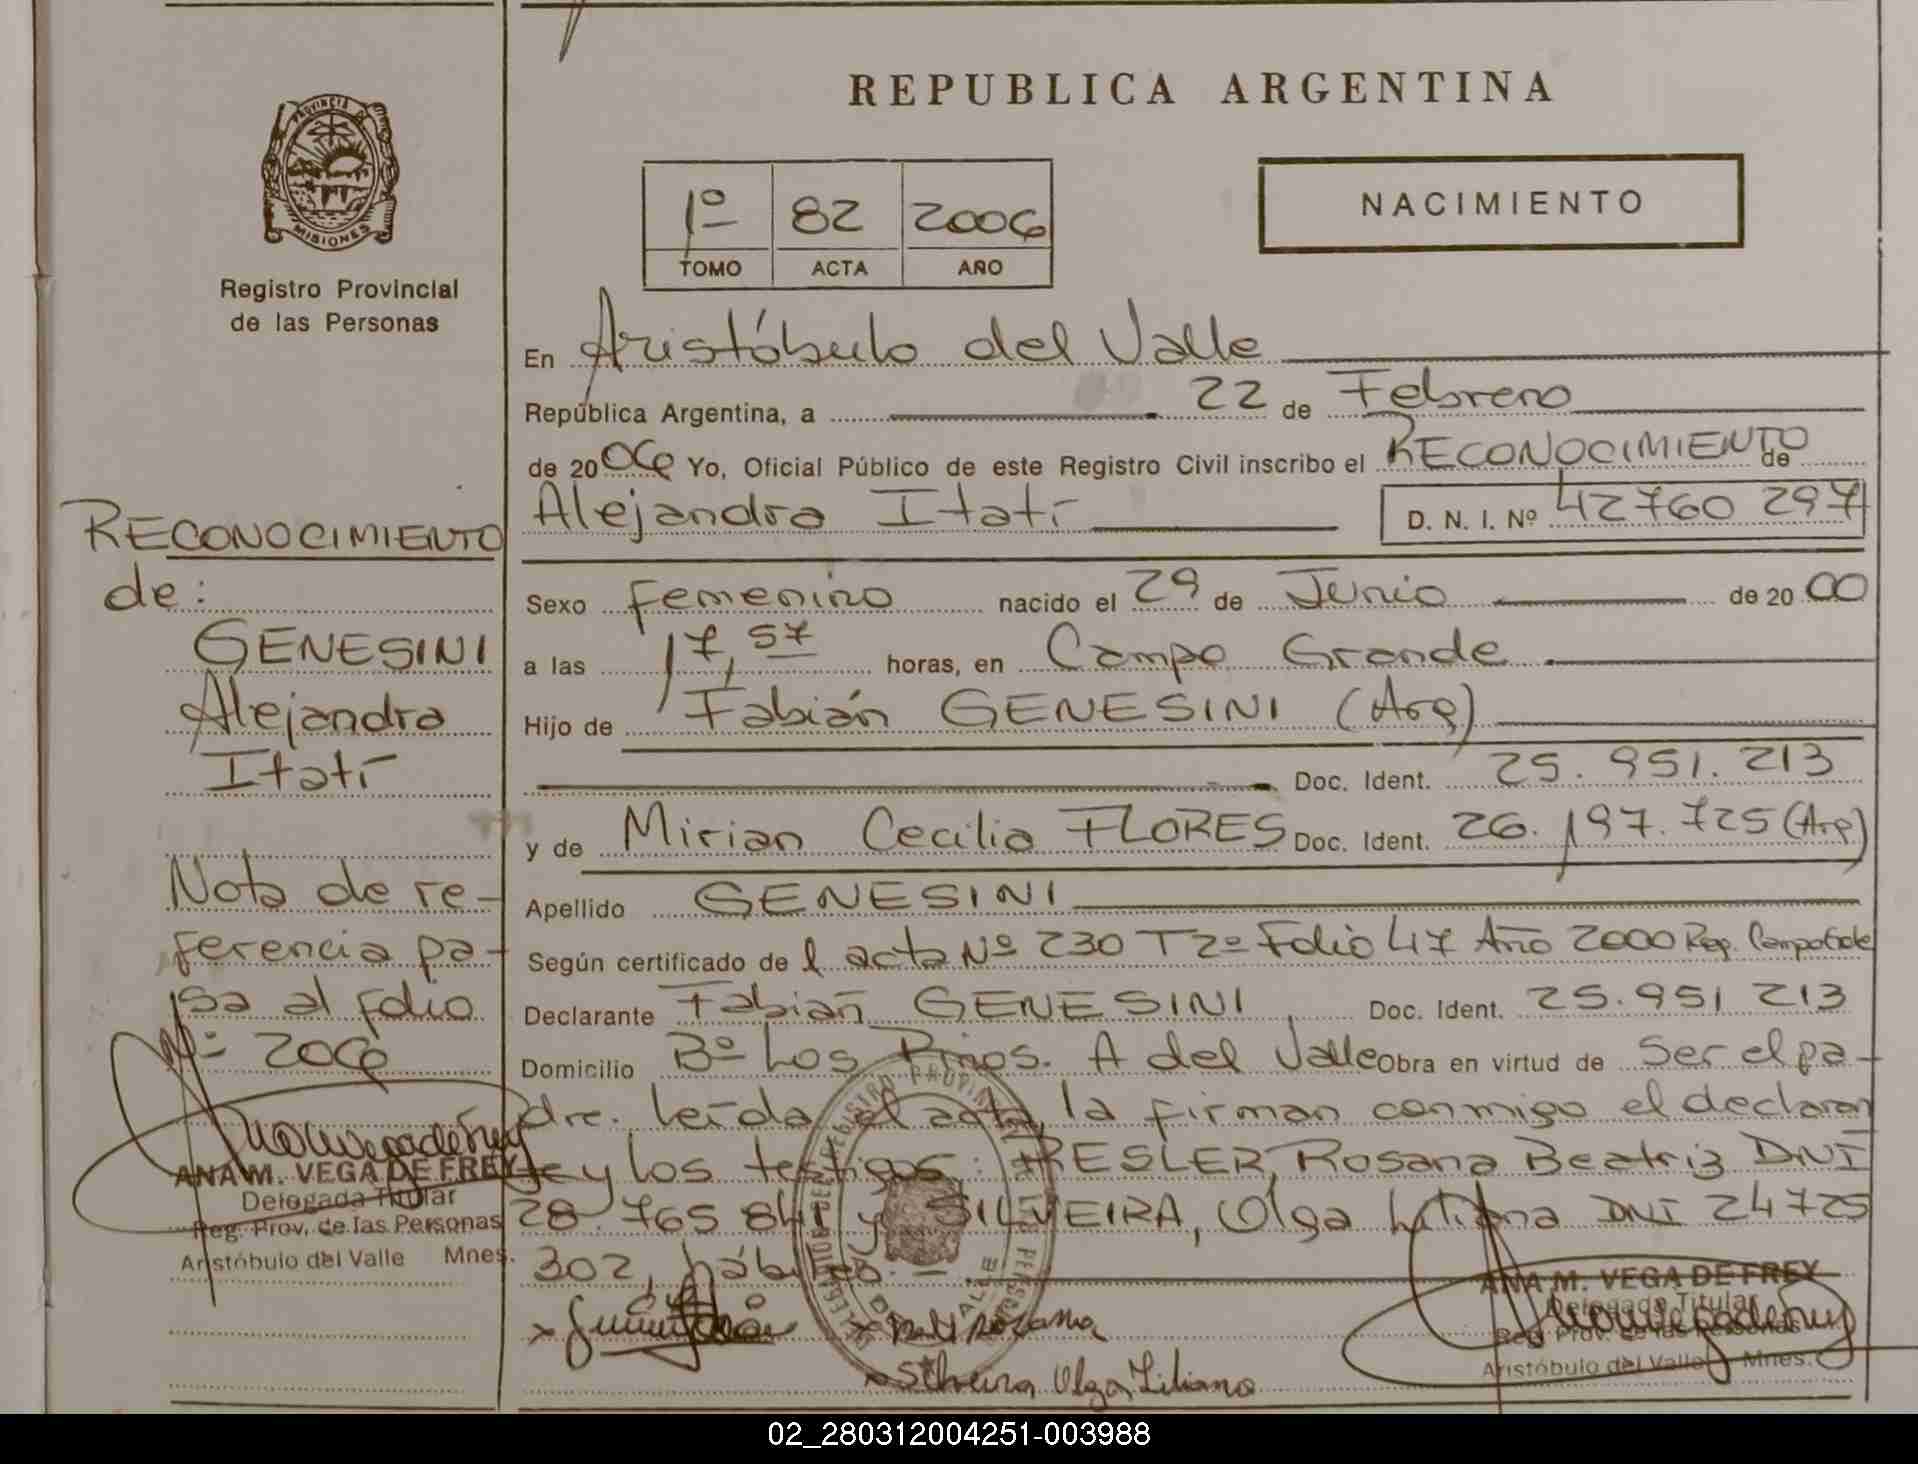 REPUBLICA ARGENTINA
PROVINCIA DE
MISIONES
Registro Provincial
de las Personas
1º 82 2006
TOMO ACTA AÑO
NACIMIENTO
En Aristóbulo del Valle
República Argentina, a 22 de Febrero
de 2006 Yo, Oficial Público de este Registro Civil inscribo el RECONOCIMIENTO de
Alejandra Itatí D. N. I. Nº 42760 297
Sexo femenino nacido el 29 de Junio de 2000
a las 17,57 horas, en Campo Grande
Hijo de Fabián GENESINI (Arg)
Doc. Ident. 25.951.213
y de Mirian Cecilia FLORES Doc. Ident. 26.197.725 (Arg)
Apellido GENESINI
Según certificado del acta Nº 230 T 2º Folio 47 Año 2000 Reg. Campo Gde
Declarante Fabián GENESINI Doc. Ident. 25.951 213
Domicilio Bº Los Pinos. A del Valle Obra en virtud de ser el pa-
dre. Leída el acta, la firman conmigo el declaran
te y los testigos: RESLER, Rosana Beatriz DNI
28.765 841 y SILVEIRA, Olga Liliana DNI 24725
302, hábiles.-
Silveira Olga Liliana
ANA M. VEGA DE FREY
Delegada Titular
Reg. Prov. de las Personas
Aristóbulo del Valle Mnes.
RECONOCIMIENTO
de:
GENESINI
Alejandra
Itatí
Nota de re-
ferencia pa-
sa al folio
Nº 206
ANA M. VEGA DE FREY
Delegada Titular
Reg. Prov. de las Personas
Aristóbulo del Valle Mnes.
02_280312004251-003988